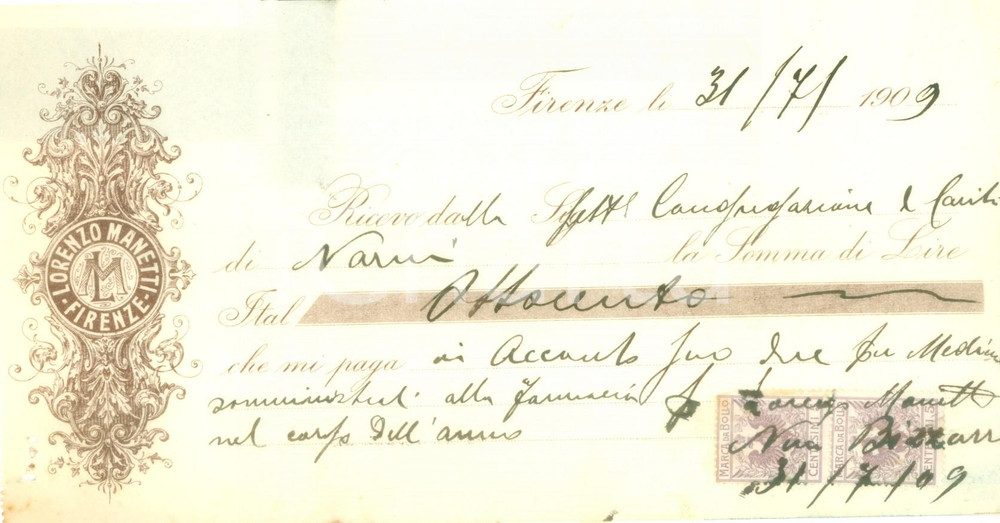 LORENZO MANETTI
FIRENZE
LM
Firenze li 31/7/ 1909
Ricevo dalla Spett Congregazione di Carità
di Narni la Somma di Lire
Ital Ottocento
che mi paga in acconto suo dare per Medicin
somministrati alla farmacia
nel corso dell'anno
MARCA DA BOLLO CENTESIMI MARCA DA BOLLO CENTESIMI
p Lorenzo Manetti
31/7/09